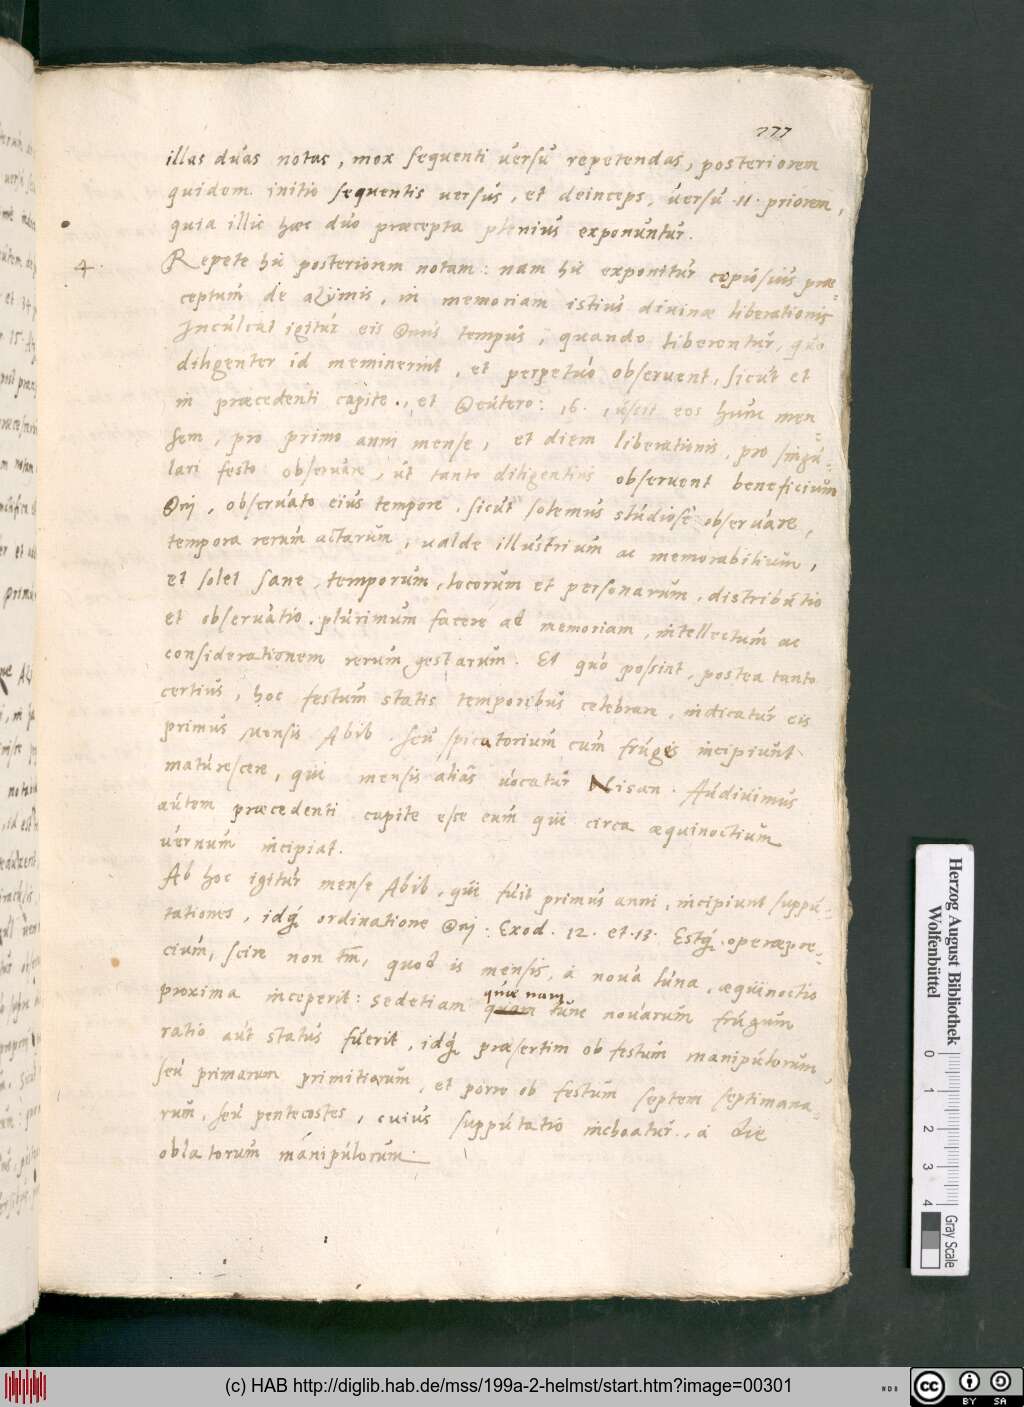 277
illas duas notas, mox sequenti versu repetendas, posteriorem
quidem initio sequentis versus, et deinceps, versu 11. priorem,
quia illic hæc duo præcepta plenius exponuntur.
4.
Repete hic posteriorem notam: nam hic exponitur copiosius præ=
ceptum de azijmis, in memoriam istius divinæ liberationis
Inculcat igitur eis Dnus tempus, quando liberentur, quo
diligenter id meminerint, et perpetuo observent, sicut et
in præcedenti capite., et Deutero: 16. iussit eos hunc men=
sem, pro primo anni mense, et diem liberationis, pro singu=
lari festo observare, ut tanto diligentius observent beneficium
Dnj, observato eius tempore. sicut solemus studiose observare,
tempora rerum actarum, valde illustrium ac memorabilium,
et solet sane, temporum, locorum et personarum, distributio
et observatio, plurimum facere ad memoriam, intellectum ac
considerationem rerum gestarum. Et quo possint, postea tanto
certius, hoc festum statis temporibus celebrare, indicatur eis
primus mensis Abib seu spicatorium cum fruges incipiunt
maturescere, qui mensis alias vocatur Nisan. Audivimus
autem præcedenti capite esse eum qui circa æquinoctium
vernum incipiat.
Ab hoc igitur mense Abib, qui fuit primus anni, incipiunt suppu=
tationes, idq; ordinatione Dnj: Exod. 12. et .13. Estq; operæpre=
cium, scire non tm, quod is mensis, a nova luna, æquinoctio
proxima inceperit: sed etiam quam tunc novarum frugum
quæ nam
ratio aut status fuerit, idq; præsertim ob festum manipulorum,
seu primarum primitiarum, et porro ob festum septem septimana=
rum, seu pentecostes, cuius supputatio inchoatur, a die
oblatorum manipulorum.
Herzog August Bibliothek
Wolfenbüttel
0 1 2 3 4
Gray Scale
(c) HAB http://diglib.hab.de/mss/199a-2-helmst/start.htm?image=00301
cc BY SA